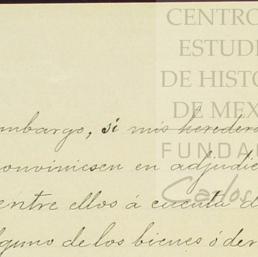 CENTRO
ESTUDI
DE HISTO
DE MEX
FUNDA
Carlos
mbargo, si mis heredero
onviniesen en adjudic
entre ellos á cuenta d
lguno de los bienes ó der